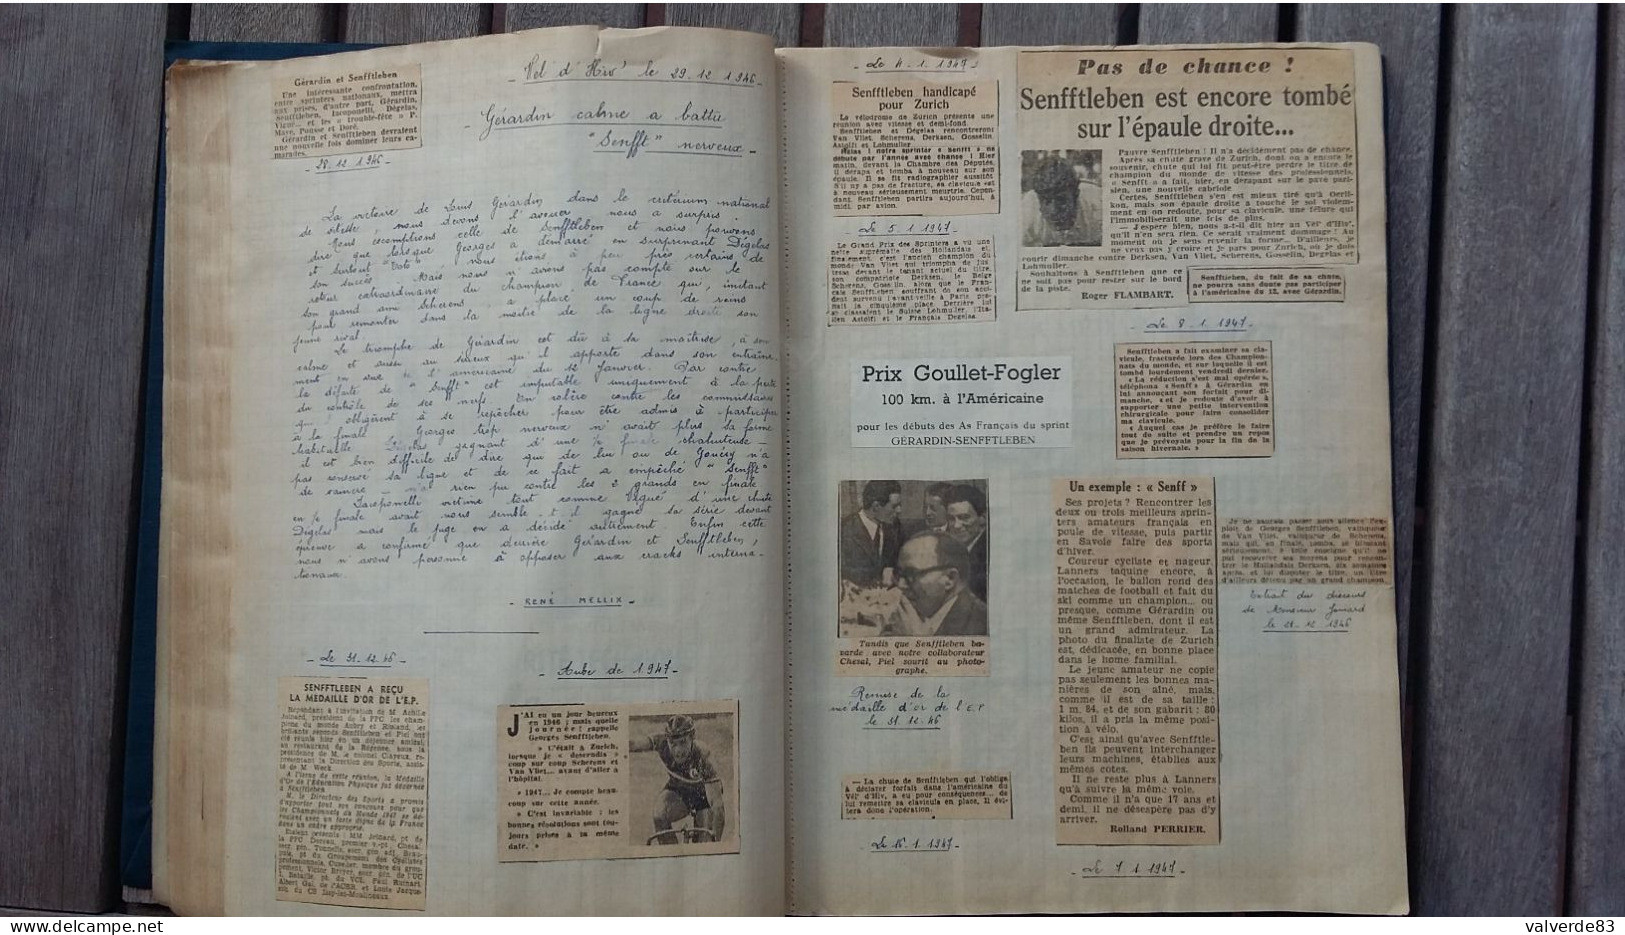 Gérardin et Senfftleben
Une intéressante confrontation,
entre sprinters nationaux, mettra
aux prises, d'autre part, Gérardin,
Senfftleben, Iacoponelli, Dégelas,
et les « trouble-fête » P.
Maye, Pousse et Doré.
Gérardin et Senfftleben devraient
une nouvelle fois dominer leurs ca-
marades.
28.12.1946
Vel d'Hiv' le 29.12.1946
Gérardin calme a battu
"Senfft" nerveux
La victoire de Louis Gérardin dans le critérium national
de vitesse, nous devons l'avouer nous a surpris.
Nous escomptions celle de Senfftleben et nous pouvons
dire que lorsque Georges a démarré en surprenant Dégelas
et surtout "Toto" nous étions à peu près certains de
son succès. Mais nous n'avions pas compté sur le
retour extraordinaire du champion de France qui, imitant
son grand ami Scherens, a placé un coup de reins
pour remonter dans la moitié de la ligne droite son
jeune rival.
Le triomphe de Gérardin est dû à sa maîtrise, à son
calme et aussi au sérieux qu'il apporte dans son entraîne-
ment en vue de l'américaine du 12 Janvier. Par contre
la défaite de "Senfft" est imputable uniquement à la perte
du contrôle de ses nerfs. En colère contre les commissaires
qui obligèrent à se repêcher pour être admis à participer
à la finale Georges trop nerveux n'avait plus sa forme
habituelle. Dégelas gagnant d'une ½ finale chahuteuse
il est bien difficile de dire qui de lui ou de Goussy n'a
pas conservé sa ligne et de ce fait a empêché "Senfft"
de vaincre — n'a rien pu contre les 2 grands en finale
Iacoponelli victime tout comme d'une chute
en ½ finale avait nous semble-t-il gagné sa série devant
Dégelas mais le juge en a décidé autrement. Enfin cette
épreuve a confirmé que derrière Gérardin et Senfftleben,
nous n'avons personne à opposer aux cracks interna-
tionaux.
- RENÉ MELLIX -
Le 31.12.46
SENFFTLEBEN A REÇU
LA MEDAILLE D'OR DE L'E.P.
Répondant à l'invitation de M Achille
Joinard, président de la FFC les cham-
pions du monde Aubry et Rioland, les
brillants seconds Senfftleben et Piel ont
été réunis hier en un déjeuner amical,
au restaurant de la Régence, sous la
présidence de M. le colonel Clayeux, re-
présentant la Direction des Sports, assis-
té de M. Weck
A l'issue de cette réunion, la Médaille
d'Or de l'Education Physique fut décernée
à Senfftleben
M. le Directeur des Sports a promis
d'apporter tout son concours pour que
les Championnats du Monde 1947 se dé-
roulent avec un faste digne de la France
dans un cadre approprié.
Etaient présents : MM Joinard, pt de
la FFC
Aube de 1947
J'AI eu un jour heureux
en 1946 ; mais quelle
journée ! rappelle
Georges Senfftleben.
« C'était à Zurich,
lorsque je « descendis »
coup sur coup Scherens et
Van Vliet... avant d'aller à
l'hôpital.
« 1947... Je compte beau-
coup sur cette année.
« C'est invariable : les
bonnes résolutions sont tou-
jours prises à la même
date. »
Le 4.1.1947
Senfftleben handicapé
pour Zurich
Le vélodrome de Zurich présente une
réunion avec vitesse et demi-fond.
Senfftleben et Dégelas rencontreront
Van Vliet, Scherens, Derksen, Gosselin,
Astolfi et Lohmuller.
Hélas ! notre sprinter « Senfft » ne
débute par l'année avec chance ! Hier
matin, devant la Chambre des Députés,
il dérapa et tomba à nouveau sur son
épaule. Il se fit radiographier aussitôt
S'il n'y a pas de fracture, sa clavicule est
à nouveau sérieusement meurtrie. Cepen-
dant, Senfftleben partira aujourd'hui, à
midi, par avion.
Le 5.1.1947
Le Grand Prix des Sprinters a vu une
nette suprématie des Hollandais et,
finalement, c'est l'ancien champion du
monde Van Vliet qui triompha de jus-
tesse devant le tenant actuel du titre,
son compatriote Derksen, le Belge
Scherens, Gosselin, alors que le Fran-
çais Senfftleben souffrant de son acci-
dent survenu l'avant-veille à Paris pre-
nait la cinquième place. Derrière lui
se classaient le Suisse Lohmuller, l'Ita-
lien Astolfi et le Français Dégelas.
Pas de chance !
Senfftleben est encore tombé
sur l'épaule droite...
Pauvre Senfftleben ! Il n'a décidément pas de chance.
Après sa chute grave de Zurich, dont on a encore le
souvenir, chute qui lui fit peut-être perdre le titre de
champion du monde de vitesse des professionnels,
« Senfft » a fait, hier, en dérapant sur le pavé pari-
sien, une nouvelle cabriole.
Certes, Senfftleben s'en est mieux tiré qu'à Oerli-
kon, mais son épaule droite a touché le sol violem-
ment et on redoute, pour sa clavicule, une fêlure qui
l'immobiliserait une fois de plus.
— J'espère bien, nous a-t-il dit hier au Vél' d'Hiv',
qu'il n'en sera rien. Ce serait vraiment dommage ! Au
moment où je sens revenir la forme... D'ailleurs, je
ne veux pas y croire et je pars pour Zurich, où je dois
courir dimanche contre Derksen, Van Vliet, Scherens, Gosselin, Dégelas et
Lohmuller.
Souhaitons à Senfftleben que ce
ne soit pas pour rester sur le bord
de la piste.
Roger FLAMBART.
Senfftleben, du fait de sa chute,
ne pourra sans doute pas participer
à l'américaine du 12, avec Gérardin.
Le 8.1.1947
Senfftleben a fait examiner sa cla-
vicule, fracturée lors des Champion-
nats du monde, et sur laquelle il est
tombé lourdement vendredi dernier.
« La réduction s'est mal opérée »,
téléphona « Senff » à Gérardin en
lui annonçant son forfait pour di-
manche, « et je redoute d'avoir à
supporter une petite intervention
chirurgicale pour faire consolider
ma clavicule.
« Auquel cas je préfère le faire
tout de suite et prendre un repos
que je prévoyais pour la fin de la
saison hivernale. »
Prix Goullet-Fogler
100 km. à l'Américaine
pour les débuts des As Français du sprint
GÉRARDIN-SENFFTLEBEN
Tandis que Senfftleben ba-
varde avec notre collaborateur
Chesal, Piel sourit au photo-
graphe.
Remise de la
médaille d'or de l'E.P
le 31.12.46
— La chute de Senfftleben qui l'oblige
à déclarer forfait dans l'américaine du
Vél' d'Hiv', a eu pour conséquences... de
lui remettre sa clavicule en place. Il évi-
tera donc l'opération.
Un exemple : « Senff »
Ses projets ? Rencontrer les
deux ou trois meilleurs sprin-
ters amateurs français en
poule de vitesse, puis partir
en Savoie faire des sports
d'hiver.
Coureur cycliste et nageur,
Lanners taquine encore, à
l'occasion, le ballon rond des
matches de football et fait du
ski comme un champion... ou
presque, comme Gérardin ou
même Senfftleben, dont il est
un grand admirateur. La
photo du finaliste de Zurich
est, dédicacée, en bonne place
dans le home familial.
Le jeune amateur ne copie
pas seulement les bonnes ma-
nières de son aîné, mais,
comme il est de sa taille :
1 m. 84, et de son gabarit : 80
kilos, il a pris la même posi-
tion à vélo.
C'est ainsi qu'avec Senfftle-
ben ils peuvent interchanger
leurs machines, établies aux
mêmes cotes.
Il ne reste plus à Lanners
qu'à suivre la même voie.
Comme il n'a que 17 ans et
demi, il ne désespère pas d'y
arriver.
Rolland PERRIER.
Le 7.1.1947
Je ne saurais passer sous silence l'ex-
ploit de Georges Senfftleben, vainqueur
de Van Vliet, vainqueur de Scherens,
mais qui, en finale, tomba, se blessant
sérieusement, à telle enseigne qu'il ne
put recouvrer ses moyens pour rencon-
trer le Hollandais Derksen, six semaines
après, et lui disputer le titre, un titre
d'ailleurs détenu par un grand champion.
Extrait du discours
de Monsieur Joinard
valverde83